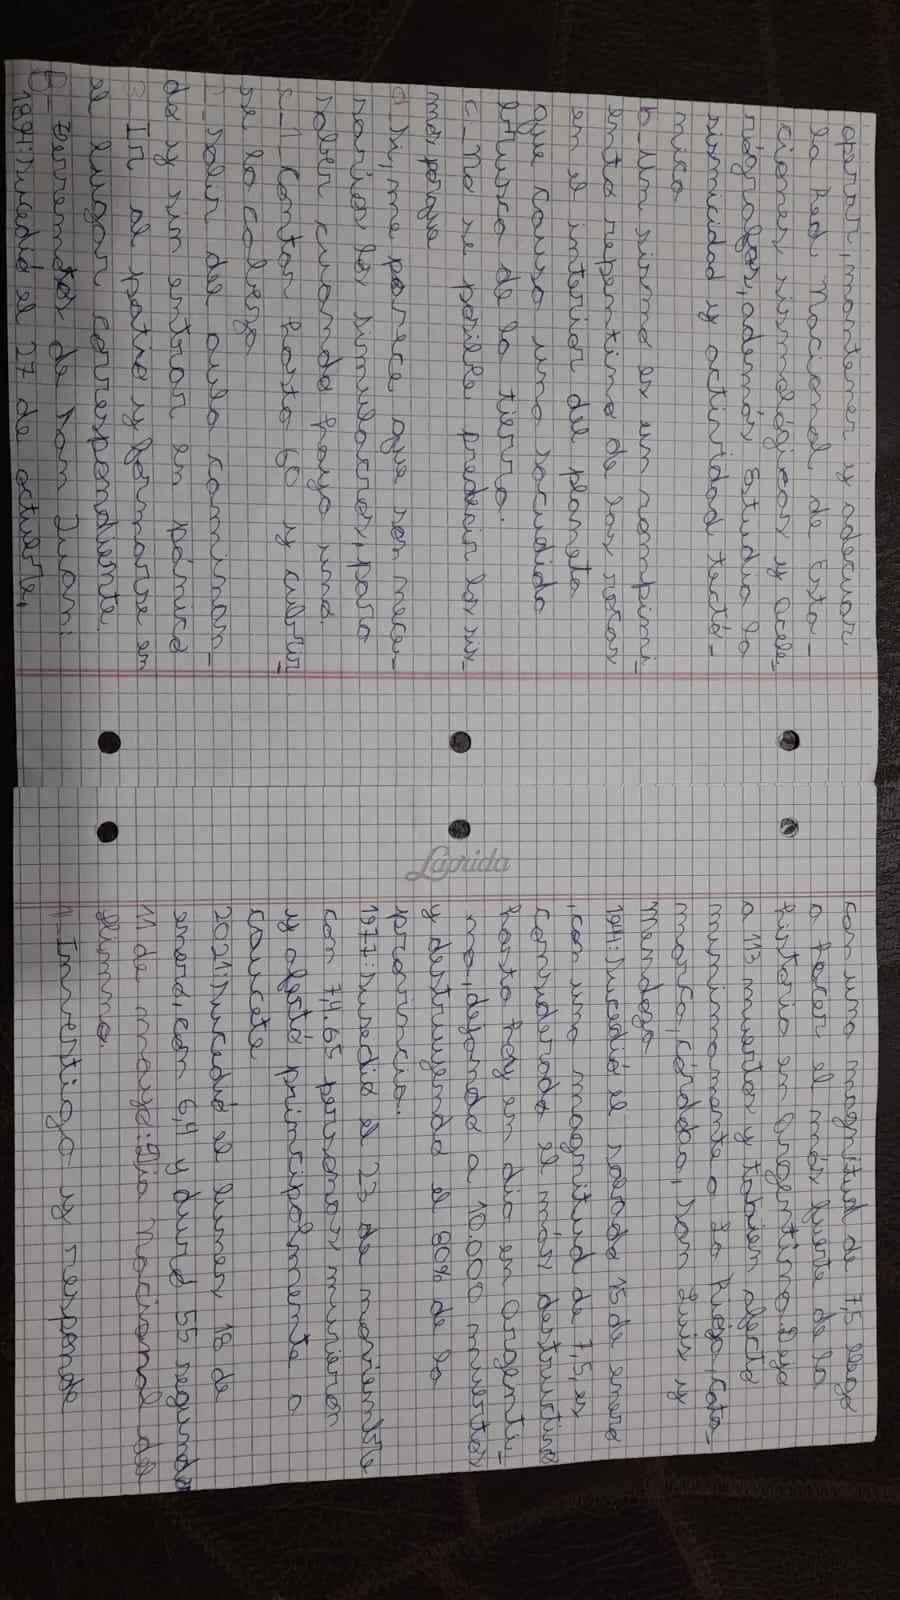 operar, mantener y adecuar
la Red Nacional de Esta-
ciones sismológicas y acele-
rógrafos, además Estudia la
sismicidad y actividad tectó-
mica
b_ Un sismo es un rompimi-
ento repentino de las rocas
en el interior del planeta
que causa una sacudida
brusca de la tierra.
c_ No se posible predecir los sis-
mos, porque
d_ Si, me parece que son nece-
sarios los simulacros, para
saber cuando haya uno.
c_1_ Contar hasta 60 y cubrir-
se la cabeza
2_ Salir del aula caminan-
do y sin entrar en pánico
3_ Ir al patio y formarse en
el lungar correspondiente.
B_ Terremotos de San Juan:
1894: Sucedió el 27 de octubre,
Laprida
con una magnitud de 7,5 llego
a hacer el más fuerte de la
historia en Argentina. Dejo
a 113 muertos y tabien afectó
munimamente a La Rioja, Cata-
marca, Córdoba, San Luis y
Mendoza
1944: Sucedió el sabado 15 de enero
, con una magnitud de 7,5, es
considerado el más destructivo
hasta hoy en dia en Argenti-
ma, dejando a 10.000 muertos
y destruyendo el 80% de la
provincia.
1977: Susedió el 23 de noviembre
con 7,4. 65 personas murieron
y afectó principalmente a
caucete
2021: Sucedió el lunes 18 de
enero, con 6,4 y duró 55 segundos
11 de mayo: Dia Nacional del
Himno.
1_ Invertigo y responde